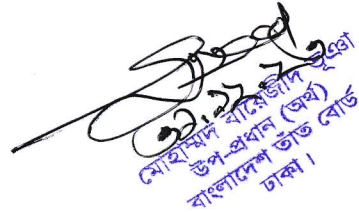 মোহাম্মদ বায়েজীদ ভূঞা
উপ-প্রধান (অর্থ)
বাংলাদেশ তাঁত বোর্ড
ঢাকা।